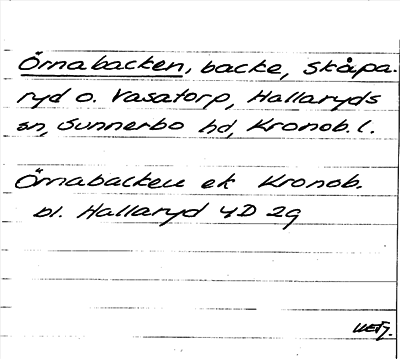 Örnabacken, backe, Skåpa-
ryd o. Vasatorp, Hallaryds
sn, Sunnerbo hd, Kronob. l.
Örnabacken ek Kronob.
bl. Hallaryd 4D 2g